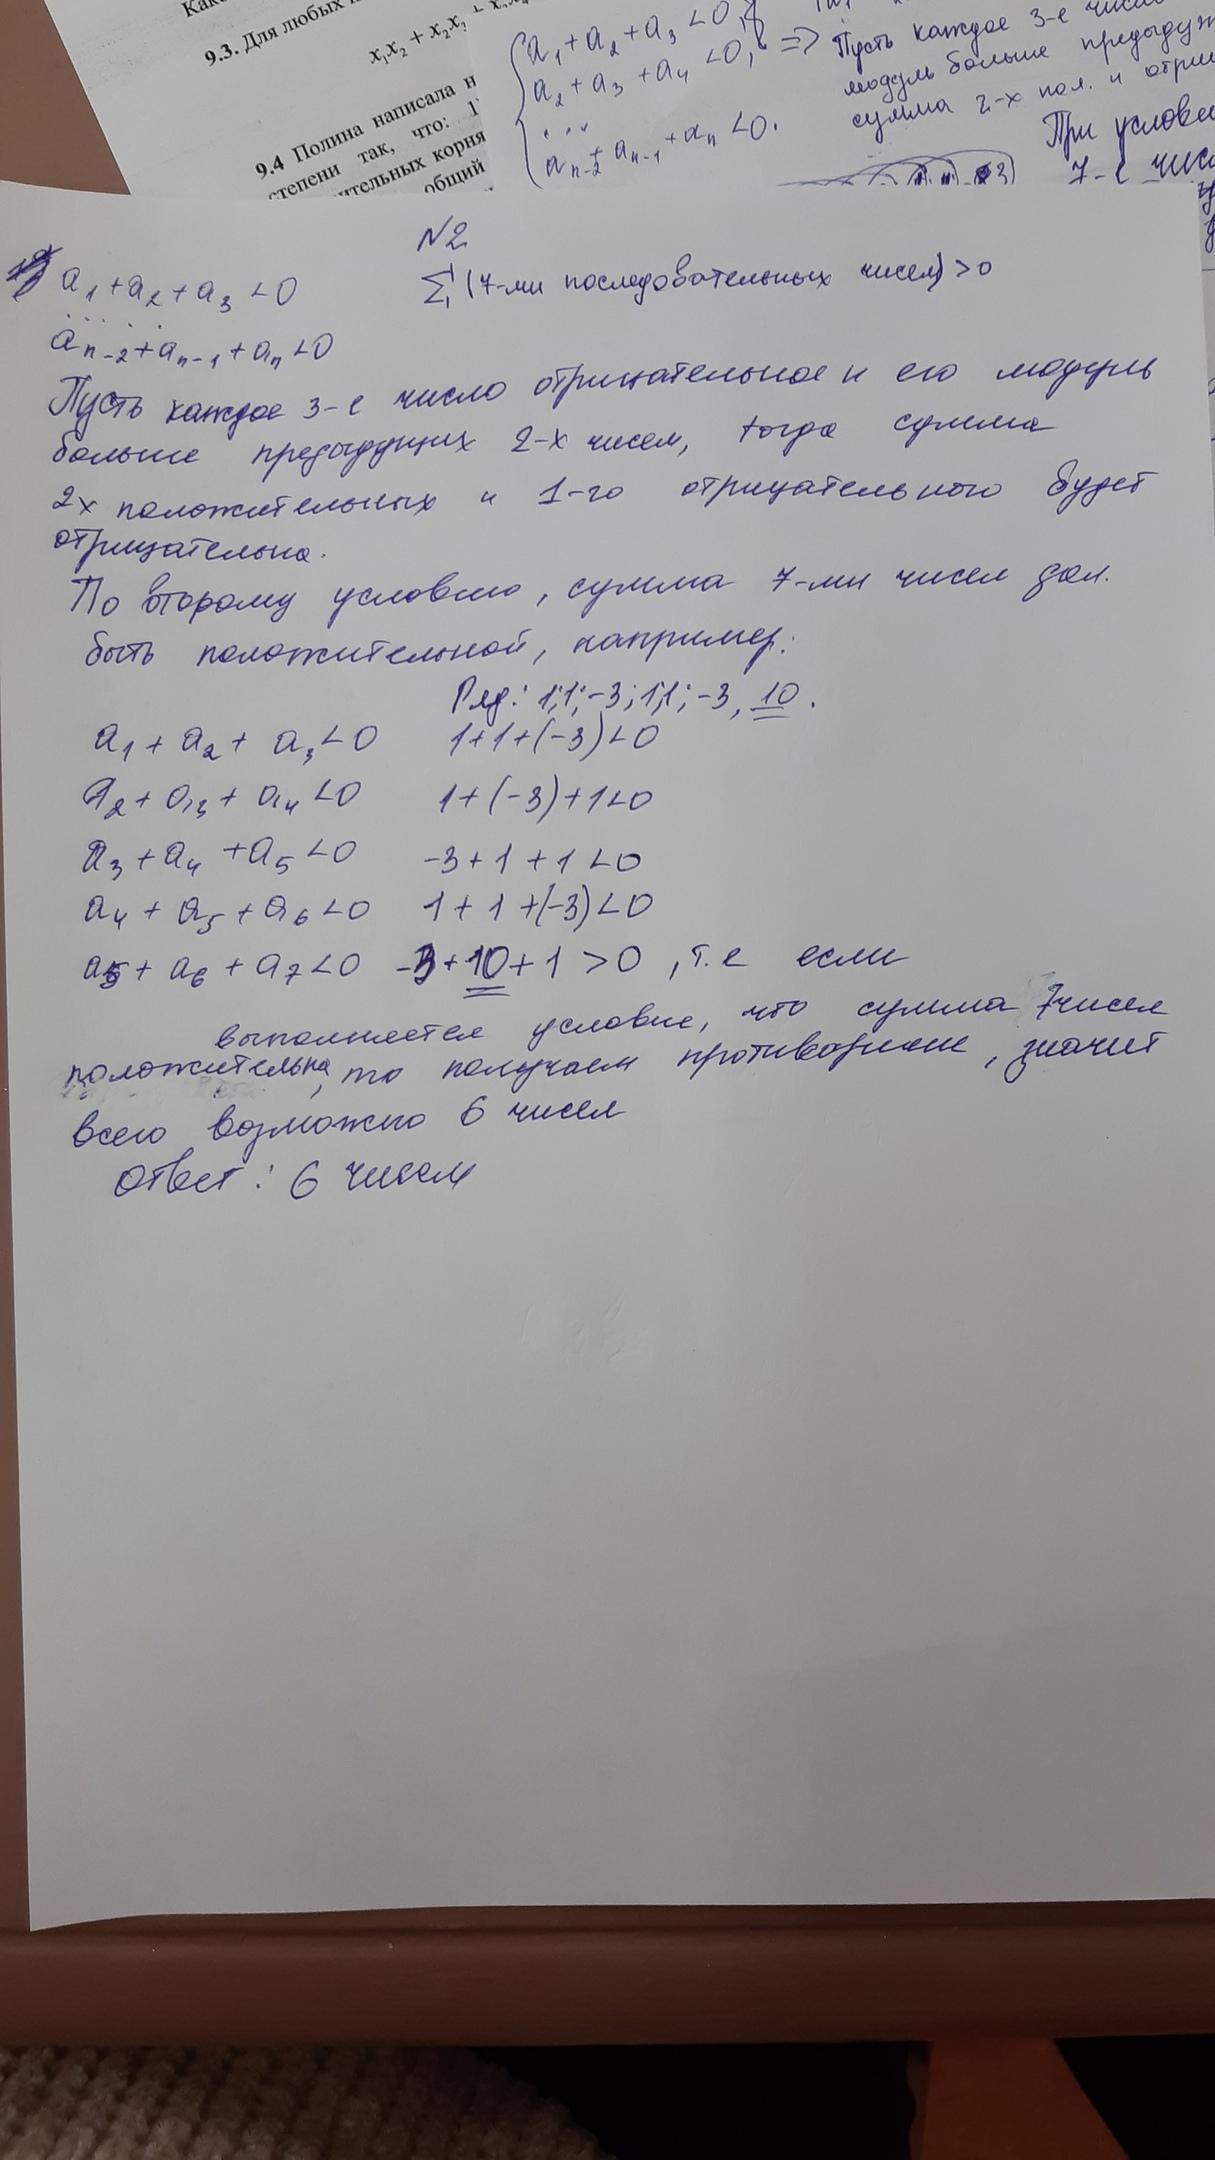 Как
9.3. Для любых
x₁x₂ + x₂x₃ +
9.4 Полина написала н
степени так, что: 1
ительных корня
общий
a₁ + a₂ + a₃ < 0,
a₂ + a₃ + a₄ < 0, =>
...
aₙ₋₂ + aₙ₋₁ + aₙ < 0.
Пусть каждое 3-е число
модуль больше предыдущ
сумма 2-х пол. и отриц
При услови
7-е числ
N2
a₁ + a₂ + a₃ < 0
∑ (7-ми последовательных чисел) > 0
.....
aₙ₋₂ + aₙ₋₁ + aₙ < 0
Пусть каждое 3-е число отрицательное и его модуль
больше предыдущих 2-х чисел, тогда сумма
2х положительных и 1-го отрицательного будет
отрицательна.
По второму условию, сумма 7-ми чисел дол.
быть положительной, например:
Ряд: 1; 1; -3; 1; 1; -3, 10.
a₁ + a₂ + a₃ < 0 1 + 1 + (-3) < 0
a₂ + a₃ + a₄ < 0 1 + (-3) + 1 < 0
a₃ + a₄ + a₅ < 0 -3 + 1 + 1 < 0
a₄ + a₅ + a₆ < 0 1 + 1 + (-3) < 0
a₅ + a₆ + a₇ < 0 -3 + 10 + 1 > 0, т.е если
выполняется условие, что сумма 7 чисел
положительна, то получаем противоречие, значит
всего возможно 6 чисел
Ответ: 6 чисел